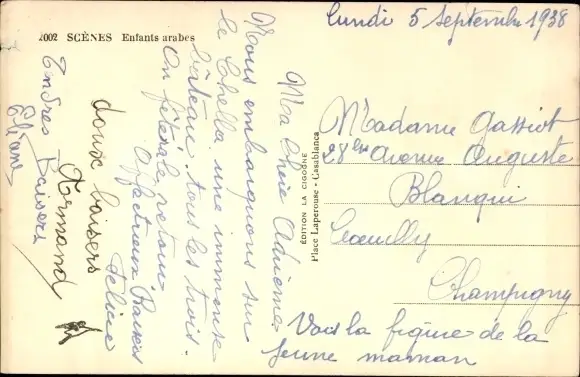 Lundi 5 Septembre 1938
2002 SCÈNES Enfants arabes
Ma Chère Adrienne
Nous embarquons sur
le Chella une immense
bateau tous les trois.
On fêtera le retour
Affectueux Baisers
Céline
doux baisers
Armand
Tendres Baisers
Eliane
ÉDITION LA CIGOGNE
Place Laperouse - Casablanca
Madame Gassiot
28 bis Avenue Auguste
Blanqui
Coeuilly
Champigny
Vois la figure de la
jeune maman